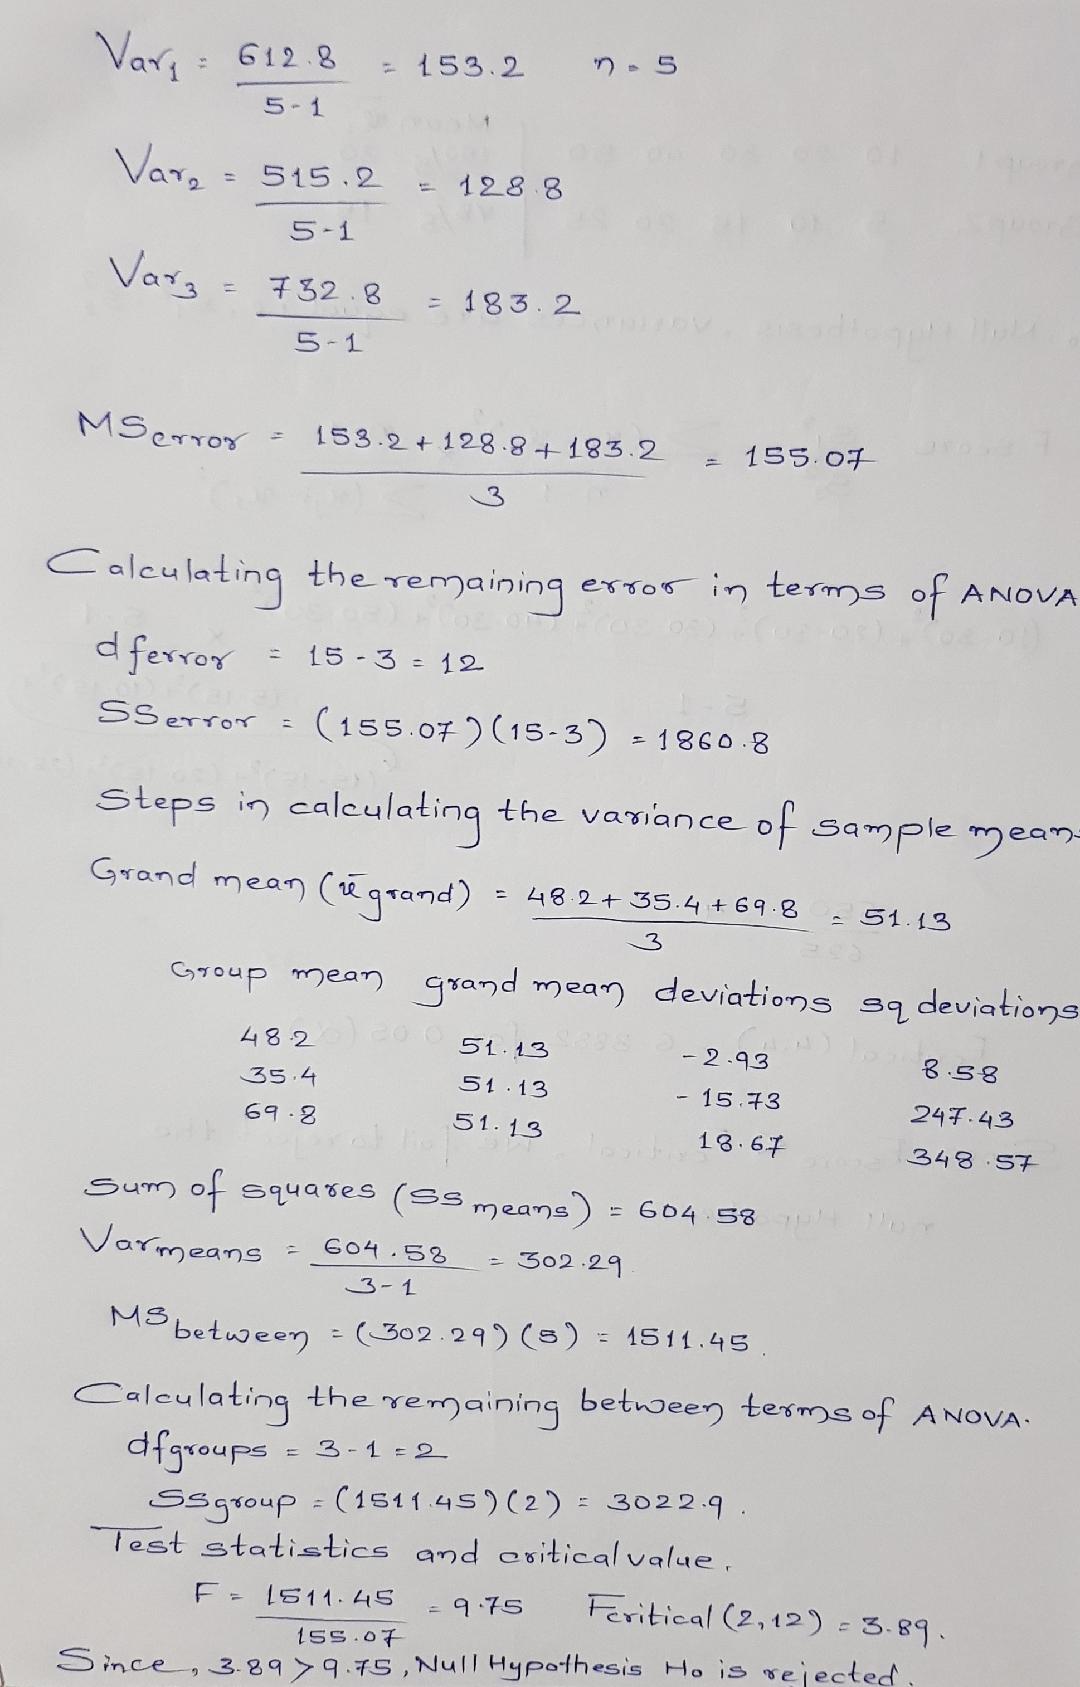 Var1 = 612.8 / 5-1 = 153.2 n = 5
Var2 = 515.2 / 5-1 = 128.8
Var3 = 732.8 / 5-1 = 183.2
MSerror = 153.2 + 128.8 + 183.2 / 3 = 155.07
Calculating the remaining error in terms of ANOVA
dferror = 15 - 3 = 12
SSerror = (155.07)(15-3) = 1860.8
Steps in calculating the variance of sample means
Grand mean (x̄grand) = 48.2 + 35.4 + 69.8 / 3 = 51.13
Group mean grand mean deviations sq deviations
48.2 51.13 -2.93 8.58
35.4 51.13 -15.73 247.43
69.8 51.13 18.67 348.57
Sum of squares (SS means) = 604.58
Varmeans = 604.58 / 3-1 = 302.29
MSbetween = (302.29)(5) = 1511.45.
Calculating the remaining between terms of ANOVA.
dfgroups = 3-1 = 2
SSgroup = (1511.45)(2) = 3022.9.
Test statistics and critical value.
F = 1511.45 / 155.07 = 9.75 Fcritical (2,12) = 3.89.
Since, 3.89 > 9.75, Null Hypothesis Ho is rejected.